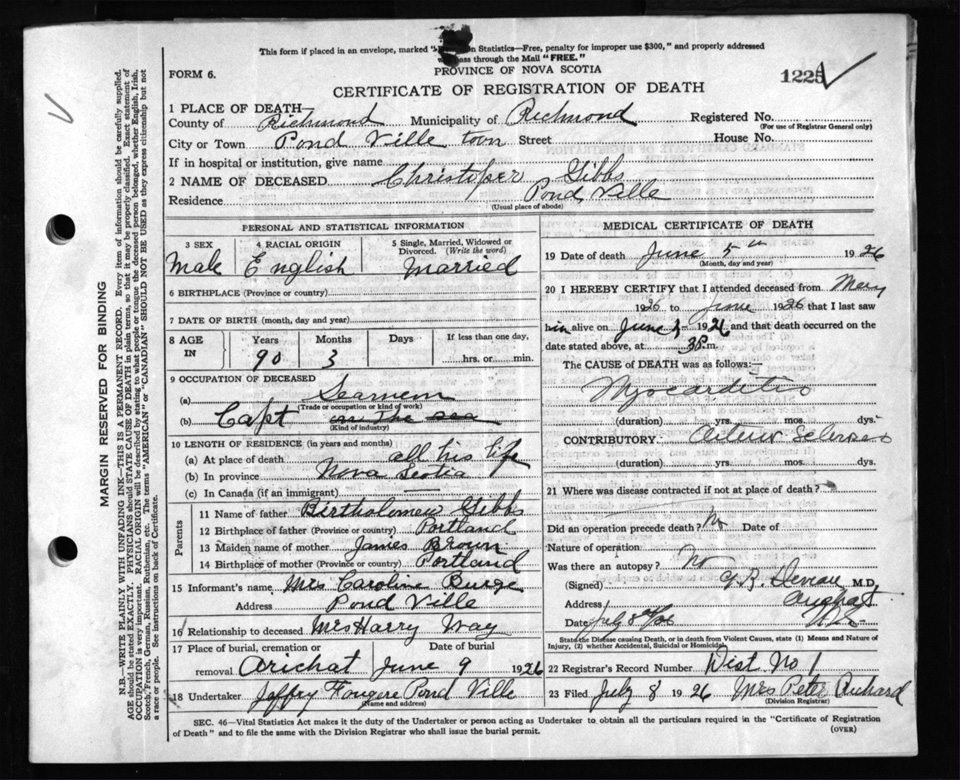 This form if placed in an envelope, marked " Statistics—Free, penalty for improper use $300," and properly addressed
pass through the Mail "FREE."
FORM 6.
PROVINCE OF NOVA SCOTIA
1225
CERTIFICATE OF REGISTRATION OF DEATH
1 PLACE OF DEATH—
County of Richmond Municipality of Richmond Registered No.
(For use of Registrar General only)
City or Town Pond Ville town Street House No.
If in hospital or institution, give name
2 NAME OF DECEASED Christoper Gibbs
Residence Pond Ville
(Usual place of abode)
PERSONAL AND STATISTICAL INFORMATION
3 SEX 4 RACIAL ORIGIN 5 Single, Married, Widowed or Divorced. (Write the word)
Male English Married
6 BIRTHPLACE (Province or country)
7 DATE OF BIRTH (month, day and year)
8 AGE IN Years Months Days If less than one day,
90 3 hrs. or min.
9 OCCUPATION OF DECEASED
(a) Searnem
(Trade or occupation or kind of work)
(b) Capt on the sea
(Kind of industry)
10 LENGTH OF RESIDENCE (in years and months)
(a) At place of death all his life
(b) In province Nova Scotia
(c) In Canada (if an immigrant)
Parents
11 Name of father Birtholomew Gibbs
12 Birthplace of father (Province or country) Portland
13 Maiden name of mother James Brown
14 Birthplace of mother (Province or country) Portland
15 Informant's name Mrs Caroline Burge
Address Pond Ville
16 Relationship to deceased Mrs Harry Way
17 Place of burial, cremation or removal Date of burial
Arichat June 9 1926
18 Undertaker Jeffry Fougere Pond Ville
(Name and address)
MEDICAL CERTIFICATE OF DEATH
19 Date of death June 5th 1926
(Month, day and year)
20 I HEREBY CERTIFY that I attended deceased from May
1926 to June 1926 that I last saw
him alive on June 1926 and that death occurred on the
date stated above, at m.
The CAUSE of DEATH was as follows:—
Myocarditis
(duration) yrs. mos. dys.
CONTRIBUTORY.
(duration) yrs. mos. dys.
21 Where was disease contracted if not at place of death?
Did an operation precede death? No Date of
Nature of operation
Was there an autopsy? No
(Signed) M.D.
Address Arichat
Date July
State the Disease causing Death, or in death from Violent Causes, state (1) Means and Nature of
Injury, (2) whether Accidental, Suicidal or Homicidal.
22 Registrar's Record Number Dist No 1
23 Filed July 8 1926 Mrs Peter Richard
(Division Registrar)
SEC. 46—Vital Statistics Act makes it the duty of the Undertaker or person acting as Undertaker to obtain all the particulars required in the "Certificate of Registration
of Death" and to file the same with the Division Registrar who shall issue the burial permit.
(OVER)
MARGIN RESERVED FOR BINDING
N.B.—WRITE PLAINLY WITH UNFADING INK—THIS IS A PERMANENT RECORD. Every item of information should be carefully supplied.
AGE should be stated EXACTLY. PHYSICIANS should STATE CAUSE OF DEATH in plain terms, so that it may be properly classified. Exact statement of
OCCUPATION is very important. RACIAL ORIGIN will be described by stating to what people or tongue the deceased person belonged, whether English, Irish,
Scotch, French, German, Russian, Ruthenian, etc. The terms "AMERICAN" or "CANADIAN" SHOULD NOT BE USED as they express citizenship but not
a race or people. See instructions on back of Certificate.